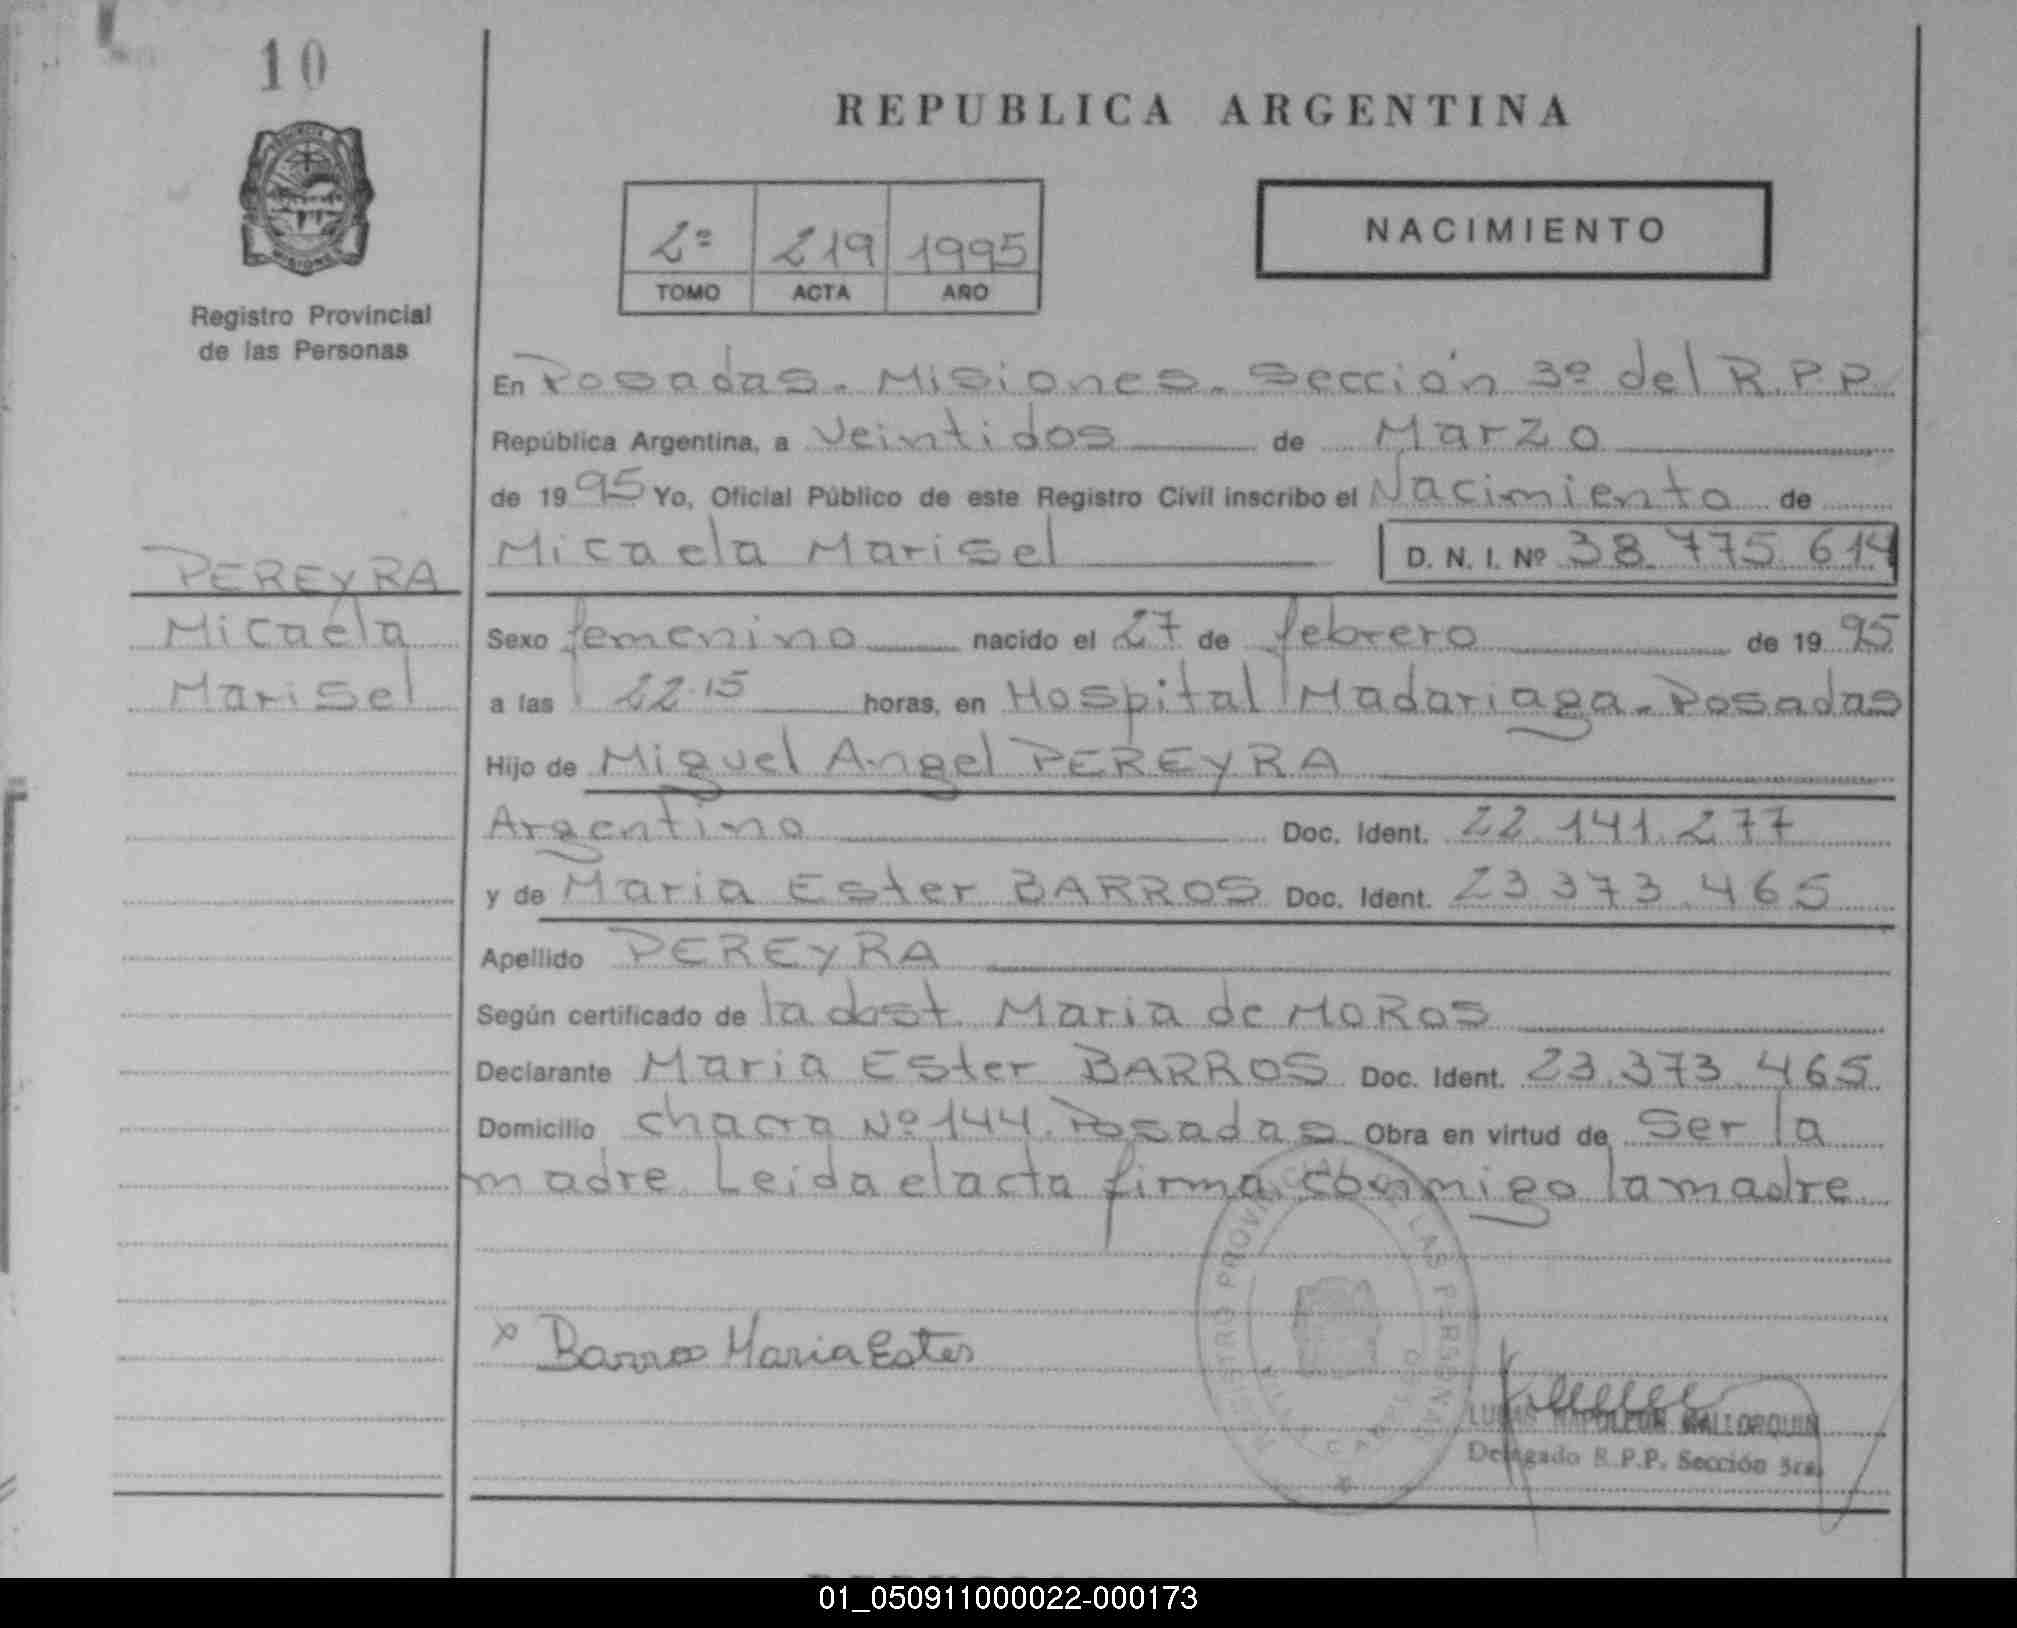 10
REPUBLICA ARGENTINA
NACIMIENTO
2º 219 1995
TOMO ACTA AÑO
Registro Provincial
de las Personas
En Posadas. Misiones. Sección 3º del R.P.P.
República Argentina, a veintidos de Marzo
de 1995 Yo, Oficial Público de este Registro Civil inscribo el Nacimiento de
Micaela Marisel D. N. I. Nº 38.775.614
PEREYRA
Micaela
Marisel
Sexo femenino nacido el 27 de febrero de 1995
a las 22.15 horas, en Hospital Madariaga. Posadas
Hijo de Miguel Angel PEREYRA
Argentino Doc. Ident. 22.141.277
y de Maria Ester BARROS Doc. Ident. 23.373.465
Apellido PEREYRA
Según certificado de la obst. Maria de MOROS
Declarante Maria Ester BARROS Doc. Ident. 23.373.465
Domicilio chacra Nº 144. Posadas Obra en virtud de ser la
madre. Leida el acta firma conmigo la madre
x Barros Maria Ester
LUCAS NAPOLEON MALLORQUIN
Delegado R.P.P. Sección 3ra.
01_050911000022-000173